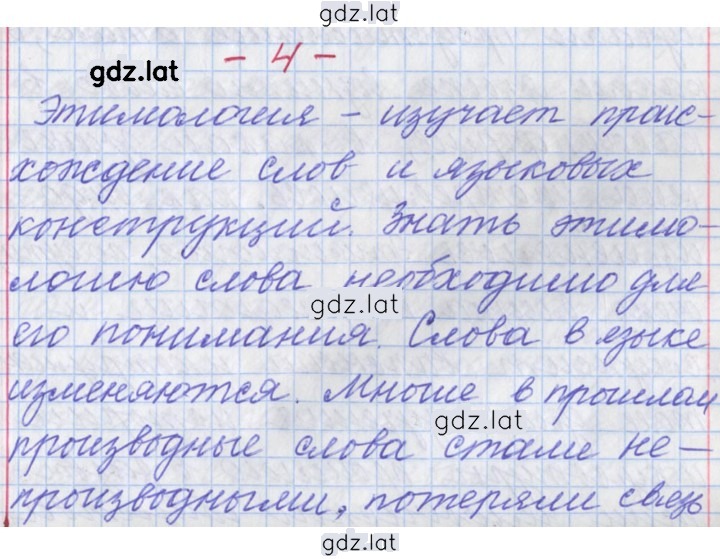 gdz.lat
gdz.lat
- 4 -
Этимология - изучает проис-
хождение слов и языковых
конструкций. Знать этимо-
логию слова необходимо для
gdz.lat
его понимания. Слова в языке
изменяются. Многие в прошлом
gdz.lat
производные слова стали не-
производными, потеряли связь
gdz.lat